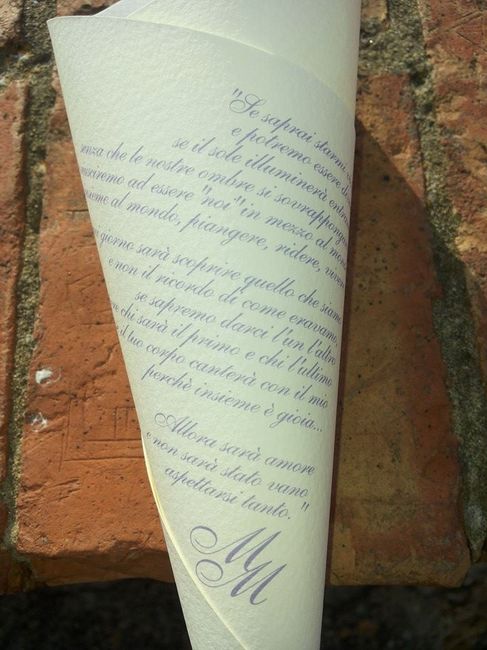 "Se saprai starmi
e potremo essere
se il sole illuminerà
senza che le nostre ombre si sovrappongano
riusciremo ad essere "noi" in mezzo al
insieme al mondo, piangere, ridere,
giorno sarà scoprire quello che siamo
e non il ricordo di come eravamo,
se sapremo darci l'un l'altro
chi sarà il primo e chi l'ultimo
il tuo corpo canterà con il mio
perchè insieme è gioia...
Allora sarà amore
e non sarà stato vano
aspettarsi tanto."
M
M